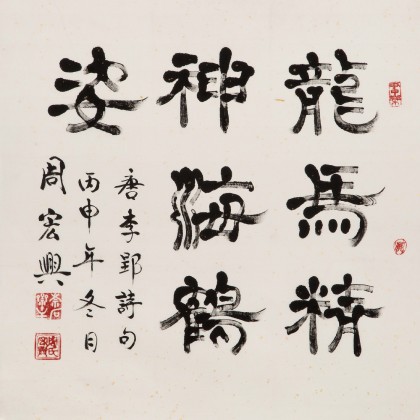 龍馬精
神海鶴
姿
唐李郢詩句
丙申年冬月
周宏興